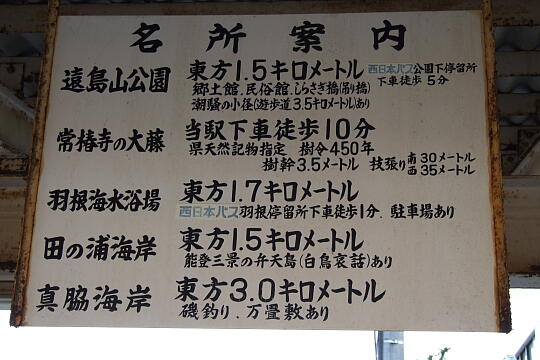 名所案内
遠島山公園 東方1.5キロメートル 西日本バス公園下停留所
下車徒歩5分
郷土館、民俗館、しらさぎ橋(吊り橋)
潮騒の小径(遊歩道3.5キロメートル)あり
常椿寺の大藤 当駅下車徒歩10分
県天然記物指定 樹令450年
樹幹3.5メートル 枝張り 南30メートル
西35メートル
羽根海水浴場 東方1.7キロメートル
西日本バス羽根停留所下車徒歩1分、駐車場あり
田の浦海岸 東方1.5キロメートル
能登三景の弁天島(白鳥哀話)あり
真脇海岸 東方3.0キロメートル
磯釣り、万畳敷あり